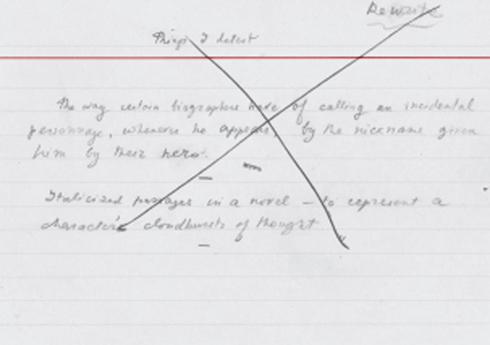 Rewrite
Things I detest
The way certain biographers have of calling an incidental
personage, whenever he appears, by the nickname given
him by their hero.
Italicized passages in a novel — to represent a
character's cloudbursts of thought